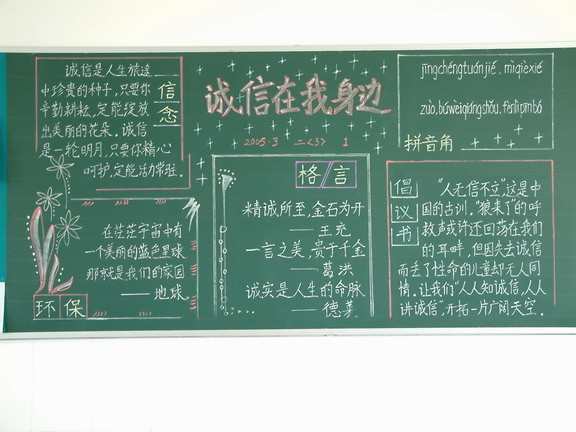 诚信是人生旅途
中珍贵的种子,只要你
辛勤耕耘,定能绽放
出美丽的花朵。诚信
是一轮明月,只要你精心
呵护,定能活力常驻。
信念
诚信在我身边
2005.3 二〈3〉 1
jīngchéngtuánjié,mìqièxié
zuò,búwèiqiángshǒu,
拼音角
在茫茫宇宙中有
一个美丽的蓝色星球
那就是我们的家园
——地球。
环保
格言
精诚所至,金石为开
——王充
一言之美,贵于千金
——葛洪
诚实是人生的命脉
——德莱
倡议书
“人无信不立”,这是中
国的古训。“狼来了”的呼
救声或许还回荡在我们
的耳畔,但因失去诚信
而丢了性命的儿童却无人同
情。让我们“人人知诚信,人人
讲诚信”,开拓一片广阔天空.